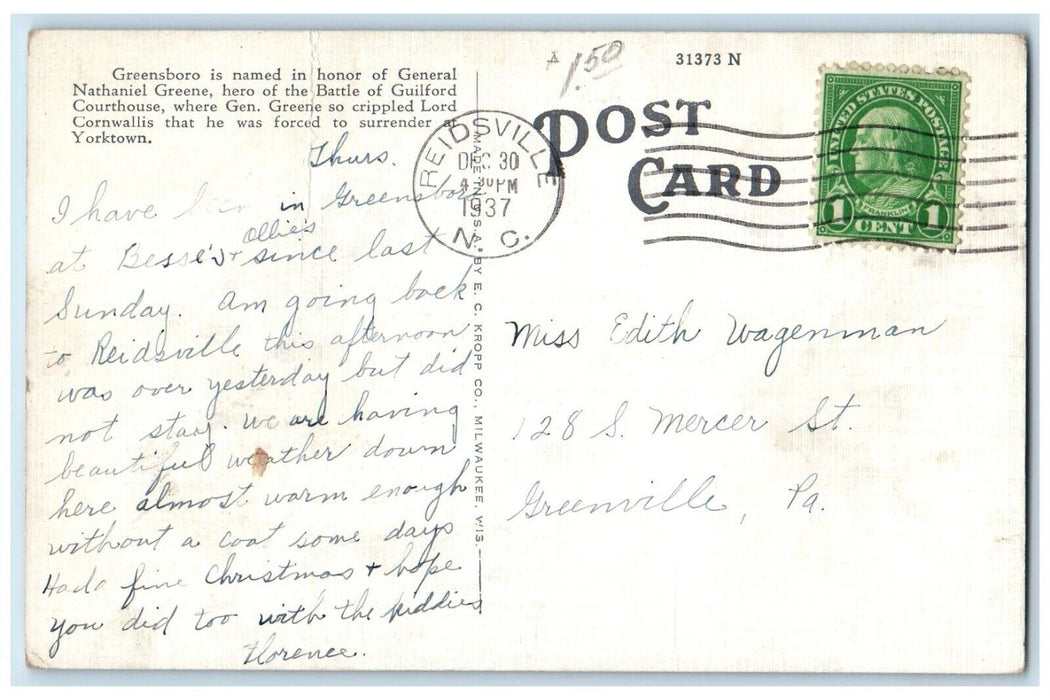 Greensboro is named in honor of General
Nathaniel Greene, hero of the Battle of Guilford
Courthouse, where Gen. Greene so crippled Lord
Cornwallis that he was forced to surrender at
Yorktown.
Thurs.
I have been in Greensboro
at Besse's + Ollie's since last
Sunday. Am going back
to Reidsville this afternoon
was over yesterday but did
not stay. We are having
beautiful weather down
here almost warm enough
without a coat some days
Had a fine Christmas + hope
you did too with the kiddies
Florence.
MADE IN U.S.A. BY E. C. KROPP CO., MILWAUKEE, WIS.
1.50
31373 N
POST
CARD
REIDSVILLE
DEC 30
PM
1937
N. C.
UNITED STATES POSTAGE
FRANKLIN
1 CENT 1
Miss Edith Wagenman
128 S. Mercer St.
Greenville, Pa.